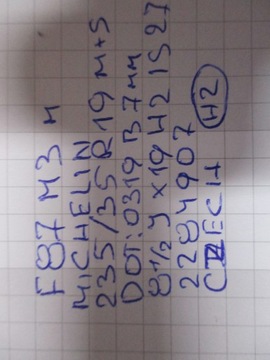 F87 M3 M
MICHELIN
235/35 R19 M+S
DOT: 0319 B7mm
8 1/2 J x 19 H2 IS 27
2284907
CZECH H2